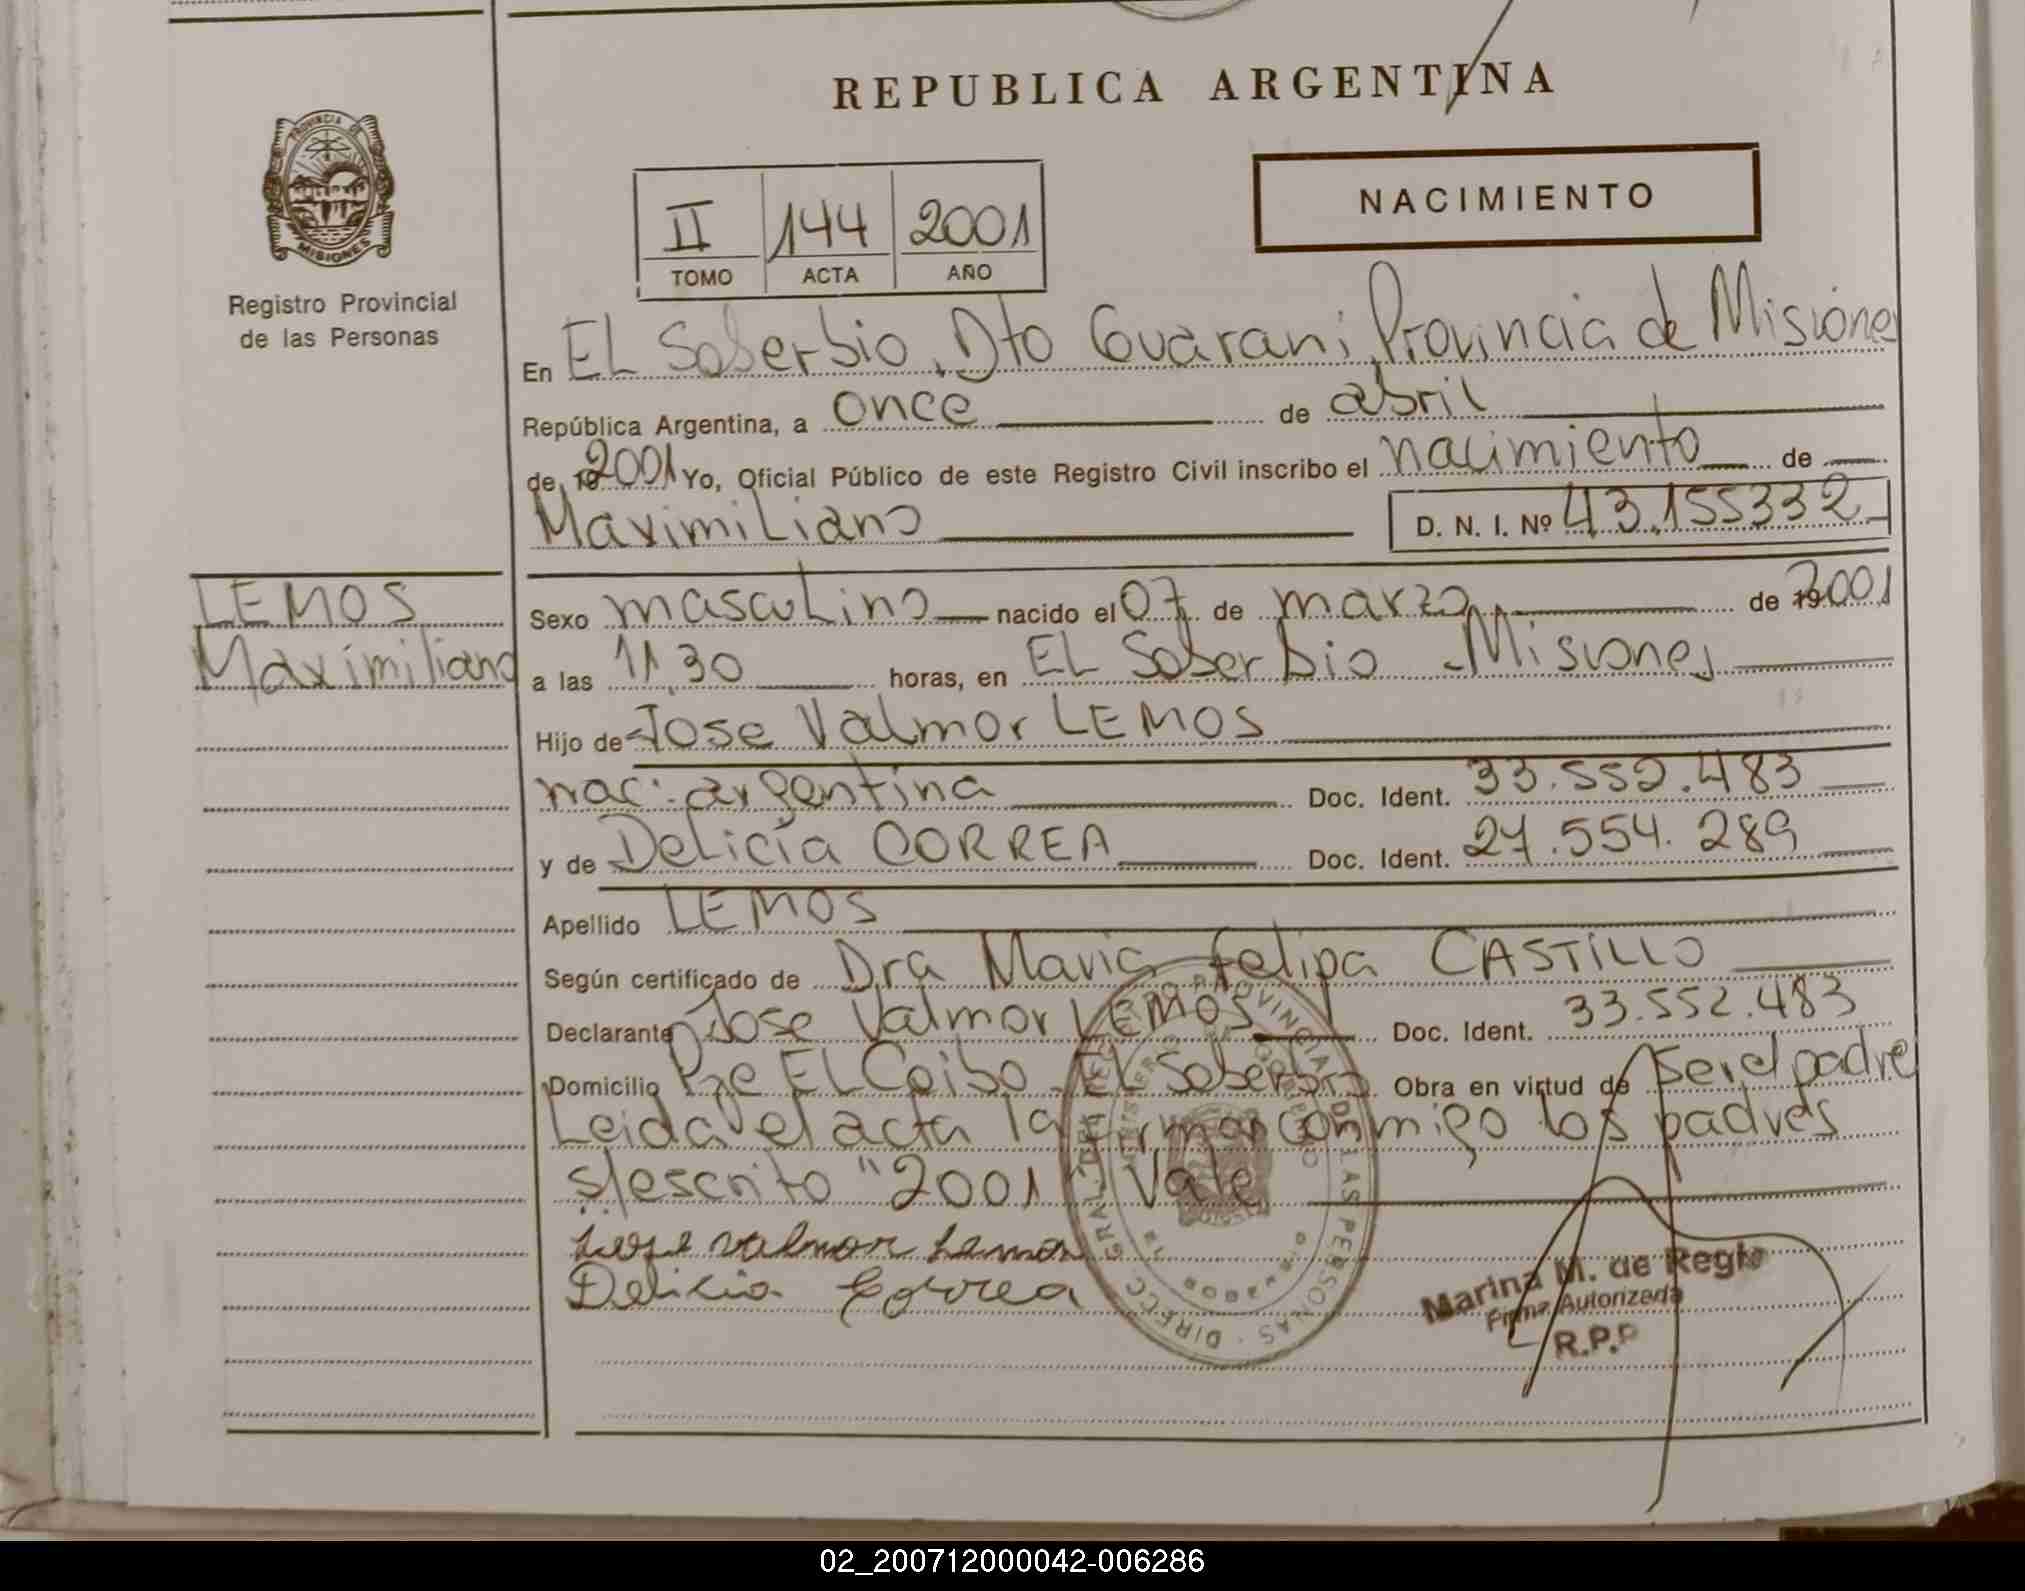 REPUBLICA ARGENTINA
PROVINCIA DE
MISIONES
Registro Provincial
de las Personas
NACIMIENTO
II 144 2001
TOMO ACTA AÑO
En EL Soberbio, Dto Guarani, Provincia de Misiones
República Argentina, a once de abril
de 19 2001 Yo, Oficial Público de este Registro Civil inscribo el nacimiento de
Maximiliano D. N. I. Nº 43.155332
LEMOS
Maximiliano
Sexo masculino nacido el 07 de marzo de 19 2001
a las 11,30 horas, en EL Soberbio - Misiones
Hijo de Jose Valmor LEMOS
nac: argentina Doc. Ident. 33.552.483
y de Delicia CORREA Doc. Ident. 27.554.289
Apellido LEMOS
Según certificado de Dra Maria Felipa CASTILLO
Declarante Jose Valmor LEMOS Doc. Ident. 33.552.483
Domicilio Pje EL Ceibo - EL Soberbio Obra en virtud de ser el padre
Leida el acta la firman conmigo los padres
s/escrito "2001" Vale
Jose valmor Lemos
Delicia Correa
PROVINCIAL DE LAS PERSONAS
Marina M. de Regle
Firma Autorizada
R.P.P
02_200712000042-006286